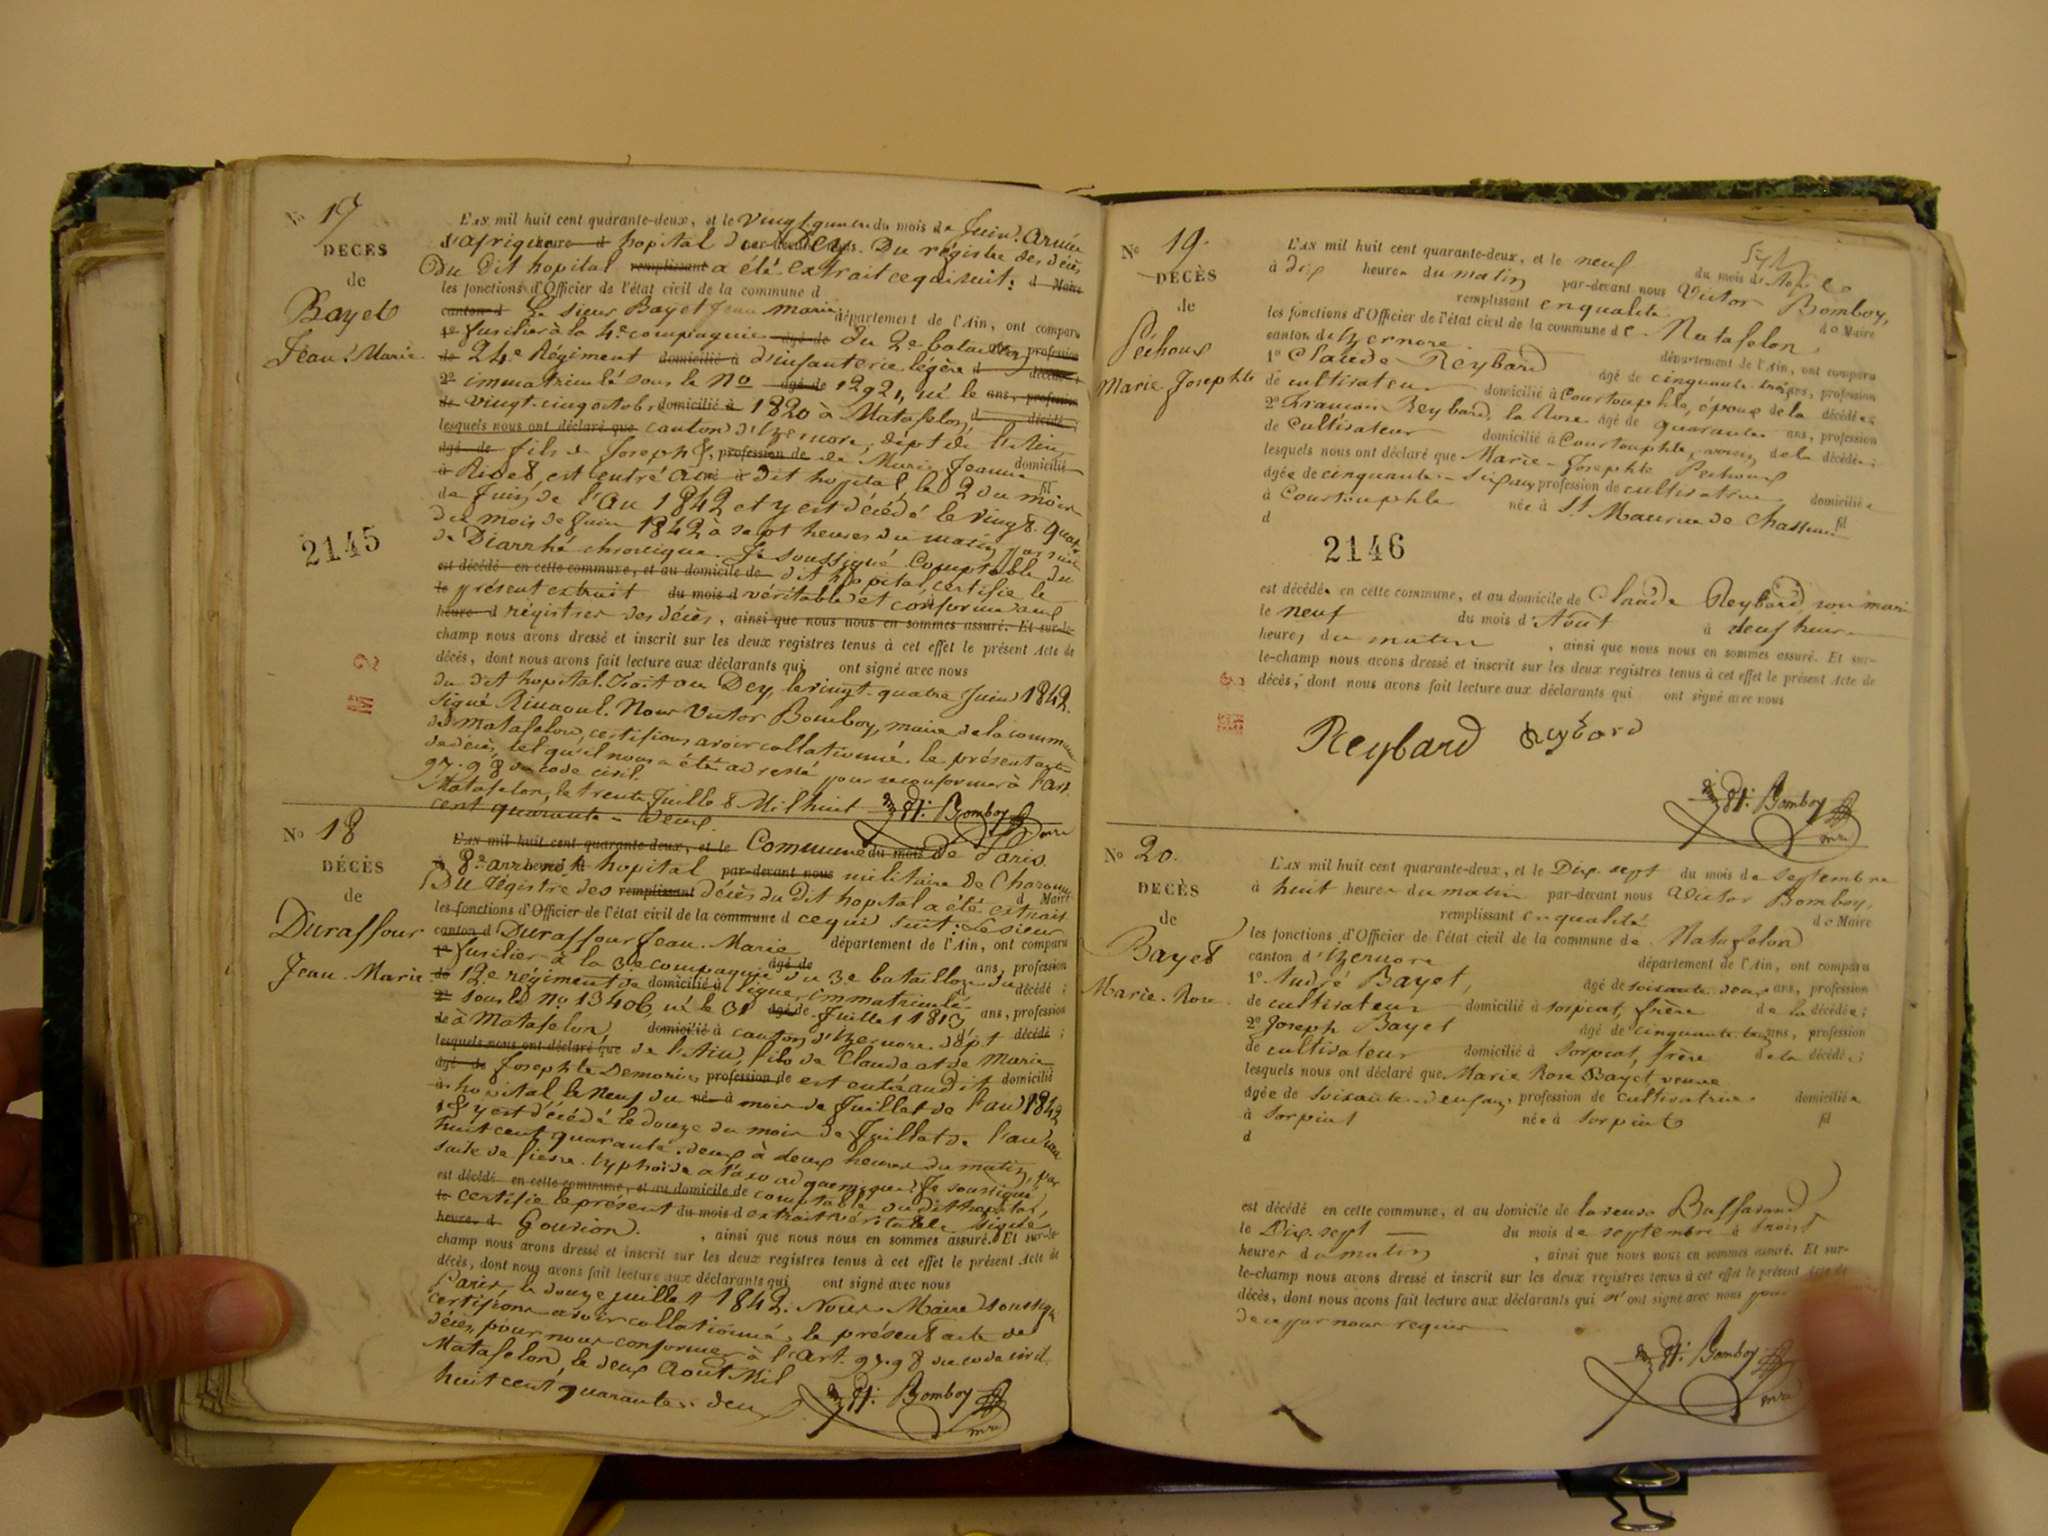 No 17
DÉCÈS
de
Bayet
Jean-Marie
2145
L'AN mil huit cent quarante-deux, et le vingt quatre du mois de Juin. Armée
d'afrique heure d hopital du Dey. Du régistre des décès
Du Dit hopital remplissant a été extrait ce qui suit: d Maire
les fonctions d'Officier de l'état civil de la commune d
canton d Le sieur Bayet Jean marie département de l'Ain, ont comparu
1º fusilier à la 4e compagnie âgé de du 2e bataillon profession
de 24e Régiment domicilié à d'infanterie légère d décédé
2º immatriculé sous le No âgé de 1292, né le ans, profession
de vingt-cinq octobre domicilié à 1820 à Matafelon, d décédé
lesquels nous ont déclaré que canton d'Izernore, dépt de l'Ain
âgé de fils de Joseph & profession de de Marie Jeanne domicilié
à est entré au né à dit hopital le 2 du mois fil
de Juin de l'an 1842 et y est décédé le vingt-quatre
du mois de Juin 1842 à sept heures du matin par suite
de Diarrhé chronique. Je soussigné Comptable du
est décédé en cette commune, et au domicile de dit hopital, certifie le
le présent extrait du mois d véritable et conforme aux
heure d régistres des décès, ainsi que nous nous en sommes assuré. Et sur-le-
champ nous avons dressé et inscrit sur les deux registres tenus à cet effet le présent Acte de
décès, dont nous avons fait lecture aux déclarants qui ont signé avec nous
du dit hopital. Fait au Dey, le vingt-quatre Juin 1842.
Signé. Nous Victor Bomboy, maire de la commune
de Matafelon, certifions avoir collationné le présent acte
de décès, tel qu'il nous a été adressé pour se conformer à l'art.
97.98 du code civil.
Matafelon, le trente Juillet Mil huit
cent quarante-deux.
Bomboy
No 18
DÉCÈS
de
Duraffour
Jean-Marie
L'AN mil huit cent quarante-deux, et le Commune du mois de Paris
à 8e arr heure d hopital par-devant nous militaire de
Du régistre des remplissant décès du dit hopital a été extrait d Maire
les fonctions d'Officier de l'état civil de la commune d ce qui suit: Le sieur
canton d Duraffour Jean-Marie département de l'Ain, ont comparu
1º fusilier à la 3e compagnie âgé de du 3e bataillon du ans, profession
de 12e régiment de domicilié à ligne, immatriculé décédé ;
2º sous le no 13406, né le 31 âgé de Juillet 1813 ans, profession
de à Matafelon, domicilié à canton d'Izernore dépt décédé ;
lesquels nous ont déclaré que de l'Ain, fils de Claude et de Marie
âgé de Josephte profession de est entré au dit domicilié
à hopital le neuf du né à mois de Juillet de l'an 1842
et y est décédé le douze du mois de Juillet de l'an mil
huit cent quarante-deux à deux heures du matin, par
suite de fièvre typhoïde. Je soussigné
est décédé en cette commune, et au domicile de comptable du dit hopital,
le certifie le présent du mois d extrait véritable signé
heure d Gourion. , ainsi que nous nous en sommes assuré. Et sur-le-
champ nous avons dressé et inscrit sur les deux registres tenus à cet effet le présent Acte de
décès, dont nous avons fait lecture aux déclarants qui ont signé avec nous
Paris, le douze juillet 1842. Nous Maire soussigné
certifions avoir collationné, le présent acte de
décès, pour nous conformer à l'art. 97.98 du code civil.
Matafelon, le deux Août Mil
huit cent quarante-deux.
Bomboy
No 19.
DÉCÈS
de
Péchoux
Marie Josephte
L'AN mil huit cent quarante-deux, et le neuf du mois de
à dix heures du matin par-devant nous Victor Bomboy,
remplissant en qualité de Maire
les fonctions d'Officier de l'état civil de la commune de Matafelon
canton d'Izernore département de l'Ain, ont comparu
1º Claude Reybard âgé de cinquante ans, profession
de cultivateur domicilié à Courtouphle, époux de la décédée;
2º François Reybard, âgé de quarante ans, profession
de Cultivateur domicilié à Courtouphle, voisin de la décédée;
lesquels nous ont déclaré que Marie-Josephte Péchoux
âgée de cinquante-six ans profession de cultivatrice domiciliée
à Courtouphle née à St Maurice de fil
d
2146
est décédée en cette commune, et au domicile de Claude Reybard son mari
le neuf du mois d'Août à neuf heure
heures du matin , ainsi que nous nous en sommes assuré. Et sur-
le-champ nous avons dressé et inscrit sur les deux registres tenus à cet effet le présent Acte de
décès, dont nous avons fait lecture aux déclarants qui ont signé avec nous
Reybard Reybard
Bomboy
No 20.
DÉCÈS
de
Bayet
Marie-Rose
L'AN mil huit cent quarante-deux, et le Dix-sept du mois de septembre
à huit heures du matin par-devant nous Victor Bomboy,
remplissant en qualité de Maire
les fonctions d'Officier de l'état civil de la commune de Matafelon
canton d'Izernore département de l'Ain, ont comparu
1º André Bayet, âgé de soixante-deux ans, profession
de cultivateur domicilié à Sorpiat, frère de la décédée;
2º Joseph Bayet âgé de cinquante ans, profession
de cultivateur domicilié à Sorpiat, frère de la décédée;
lesquels nous ont déclaré que Marie Rose Bayet veuve
âgée de soixante ans, profession de cultivatrice domiciliée
à Sorpiat née à Sorpiat fil
d
est décédé en cette commune, et au domicile de la veuve Buffavand
le Dix-sept du mois de septembre à trois
heures du matin , ainsi que nous nous en sommes assuré. Et sur-
le-champ nous avons dressé et inscrit sur les deux registres tenus à cet effet le présent Acte de
décès, dont nous avons fait lecture aux déclarants qui n'ont signé avec nous pour
de ce par nous requis
Bomboy